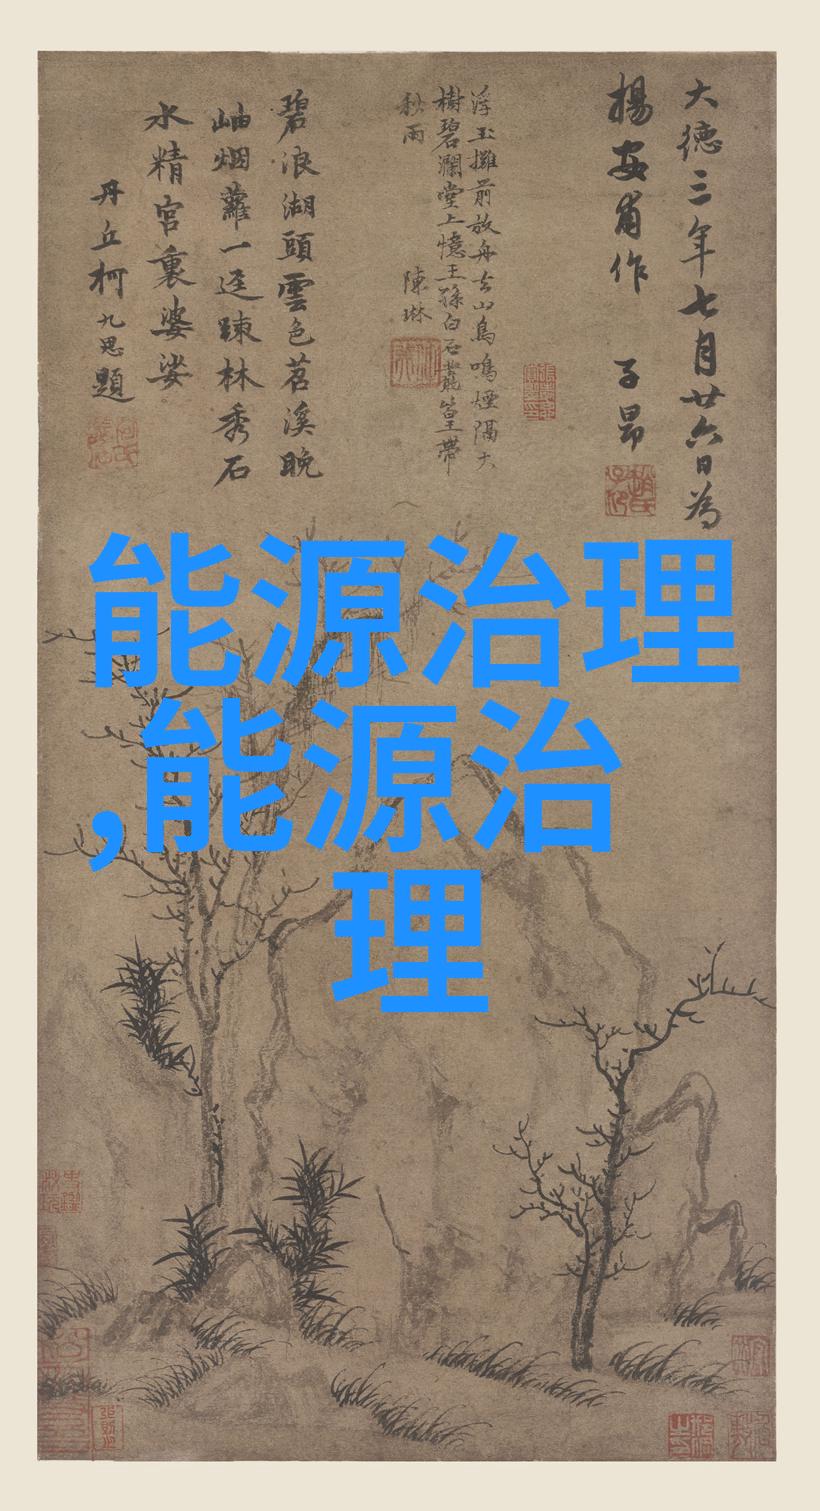 大德三年七月廿六日為
楊安甫作 子昂
浮玉攤前放舟去山鳥鳴煙隔大
樹碧瀾堂上憶王孫白石叢篁帶
秋雨 陳琳
碧浪湖頭雲色苕溪晚
岫烟蘿一逕踈林秀石
水精宮裏婆娑
丹丘柯九思題
能源治理
,能源治
理